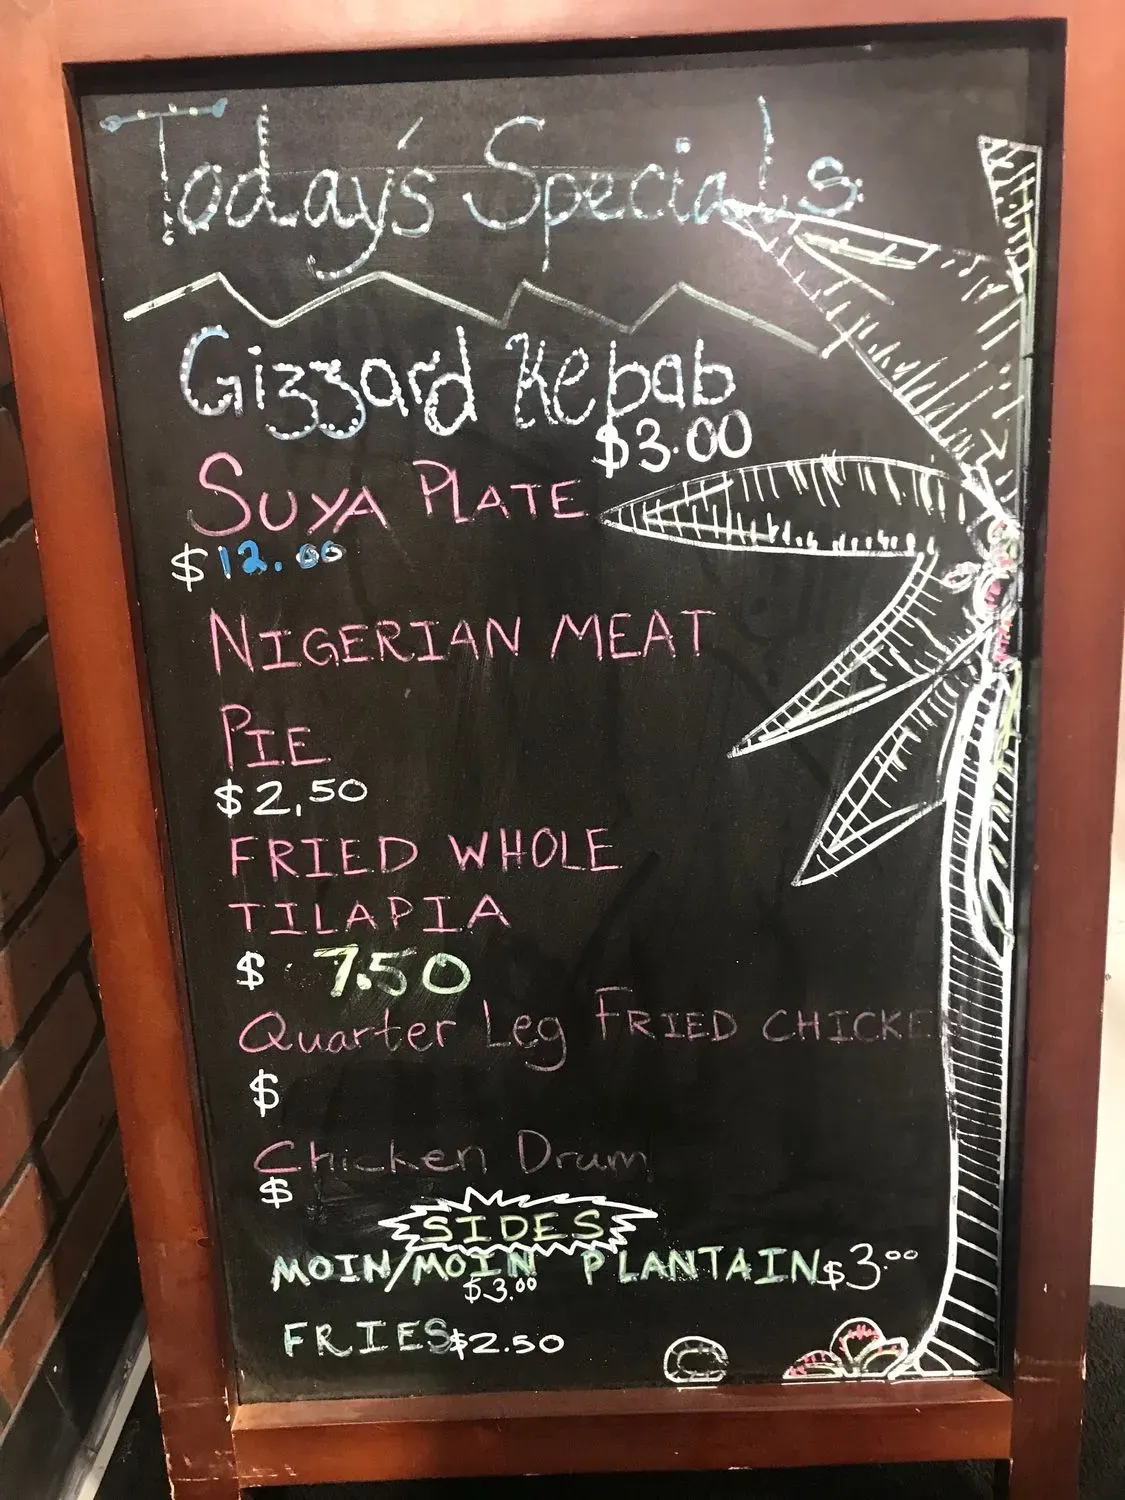 Today's Specials
Gizzard Kebab
$3.00
SUYA PLATE
$12.00
NIGERIAN MEAT
PIE
$2,50
FRIED WHOLE
TILAPIA
$ 7.50
Quarter Leg FRIED CHICKEN
$
Chicken Drum
$
SIDES
MOIN/MOIN PLANTAIN $3.00
$3.00
FRIES $2.50